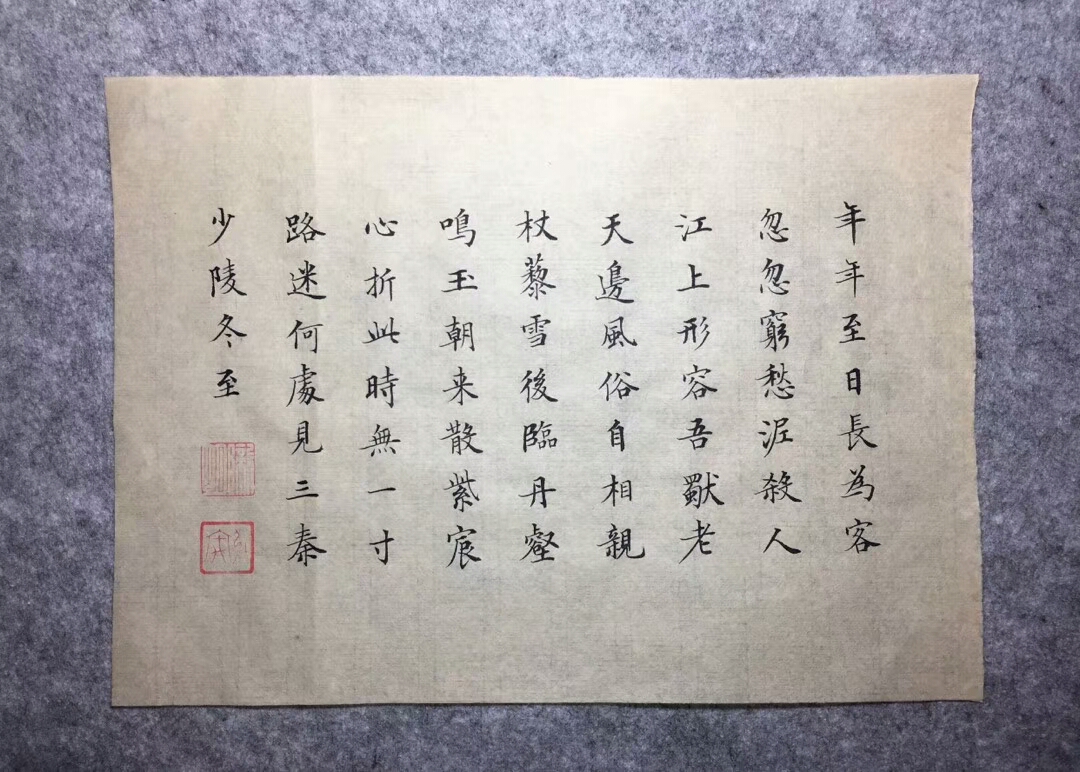 年年至日長為客
忽忽窮愁泥殺人
江上形容吾獨老
天邊風俗自相親
杖藜雪後臨丹壑
鳴玉朝来散紫宸
心折此時無一寸
路迷何處見三秦
少陵冬至